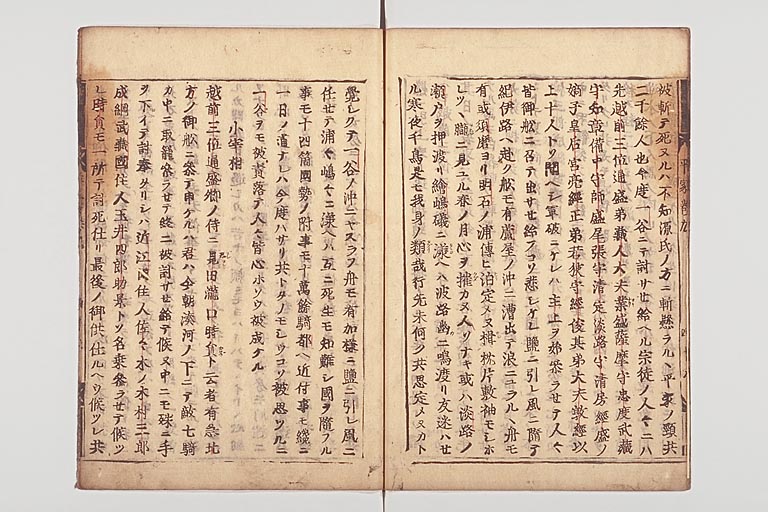 被斬テ死ヌルハ不知源氏ノ方ニ斬懸ラルヽ平家ノ頸共
二千餘人也今度一谷ニテ討サセ給ヘル宗徒ノ人々ニハ
先越前三位通盛弟藏人大夫業盛薩摩守忠度武藏
守知章備中守師盛尾張守清定淡路守清房經盛ノ
嫡子皇后宮亮經正弟若狹守經俊其弟大夫敦經以
上十人トソ聞ヘシ軍破ニケレハ主上ヲ始奉ラセテ人々
皆御舩ニ召テ出サセ給フコソ悲シケレ鹽ニ引レ風ニ隨テ
紀伊路ヘ赴ク舩モ有蘆屋ノ沖ニ漕出テ浪ニユラルヽ舟モ
有或須磨ヨリ明石ノ浦傳ヒ泊定メヌ楫枕片敷袖モシホ
レツヽ朧ニ見ユル春ノ月心ヲ摧カヌ人ソナキ或ハ淡路ノ
瀬戸ヲ押渡リ繪嶋磯ニ漾ヘハ波路幽ニ鳴渡リ友迷ハセ
ル寒夜千鳥是モ我身ノ類哉行先未何ク共思定メヌカト
覺シクテ一谷ノ沖ニヤスラフ舟モ有加樣ニ鹽ニ引レ風ニ
任セテ浦々嶋々ニ漾ヘハ互ニ死生モ知難シ國ヲ隨フル
事モ十四箇國勢ノ附事モ十萬餘騎都ヘ近付事モ纔ニ
一日ノ道ナレハ今度ハサリ共トタノモシウコソ被思ツルニ
一谷ヲモ被責落テ人々皆心ホソウ被成ケル
小宰相
越前三位通盛卿ノ侍ニ見田瀧口時員ト云者有急北
方ノ御舩ニ參テ申ケルハ君ハ今朝湊河ノ下ニテ敵七騎
カ中ニ取籠奉ラセテ終ニ被討サセ給テ候ヌ中ニモ殊ニ手
ヲ下イテ討奉タリシハ近江國住人佐々木ノ木村三郎
成綱武藏國住人玉井四郎助景トソ名乗參ラセテ候ツ
レ時員モ一所テ討死仕リ最後ノ御供仕ルヘウ候ツレ共